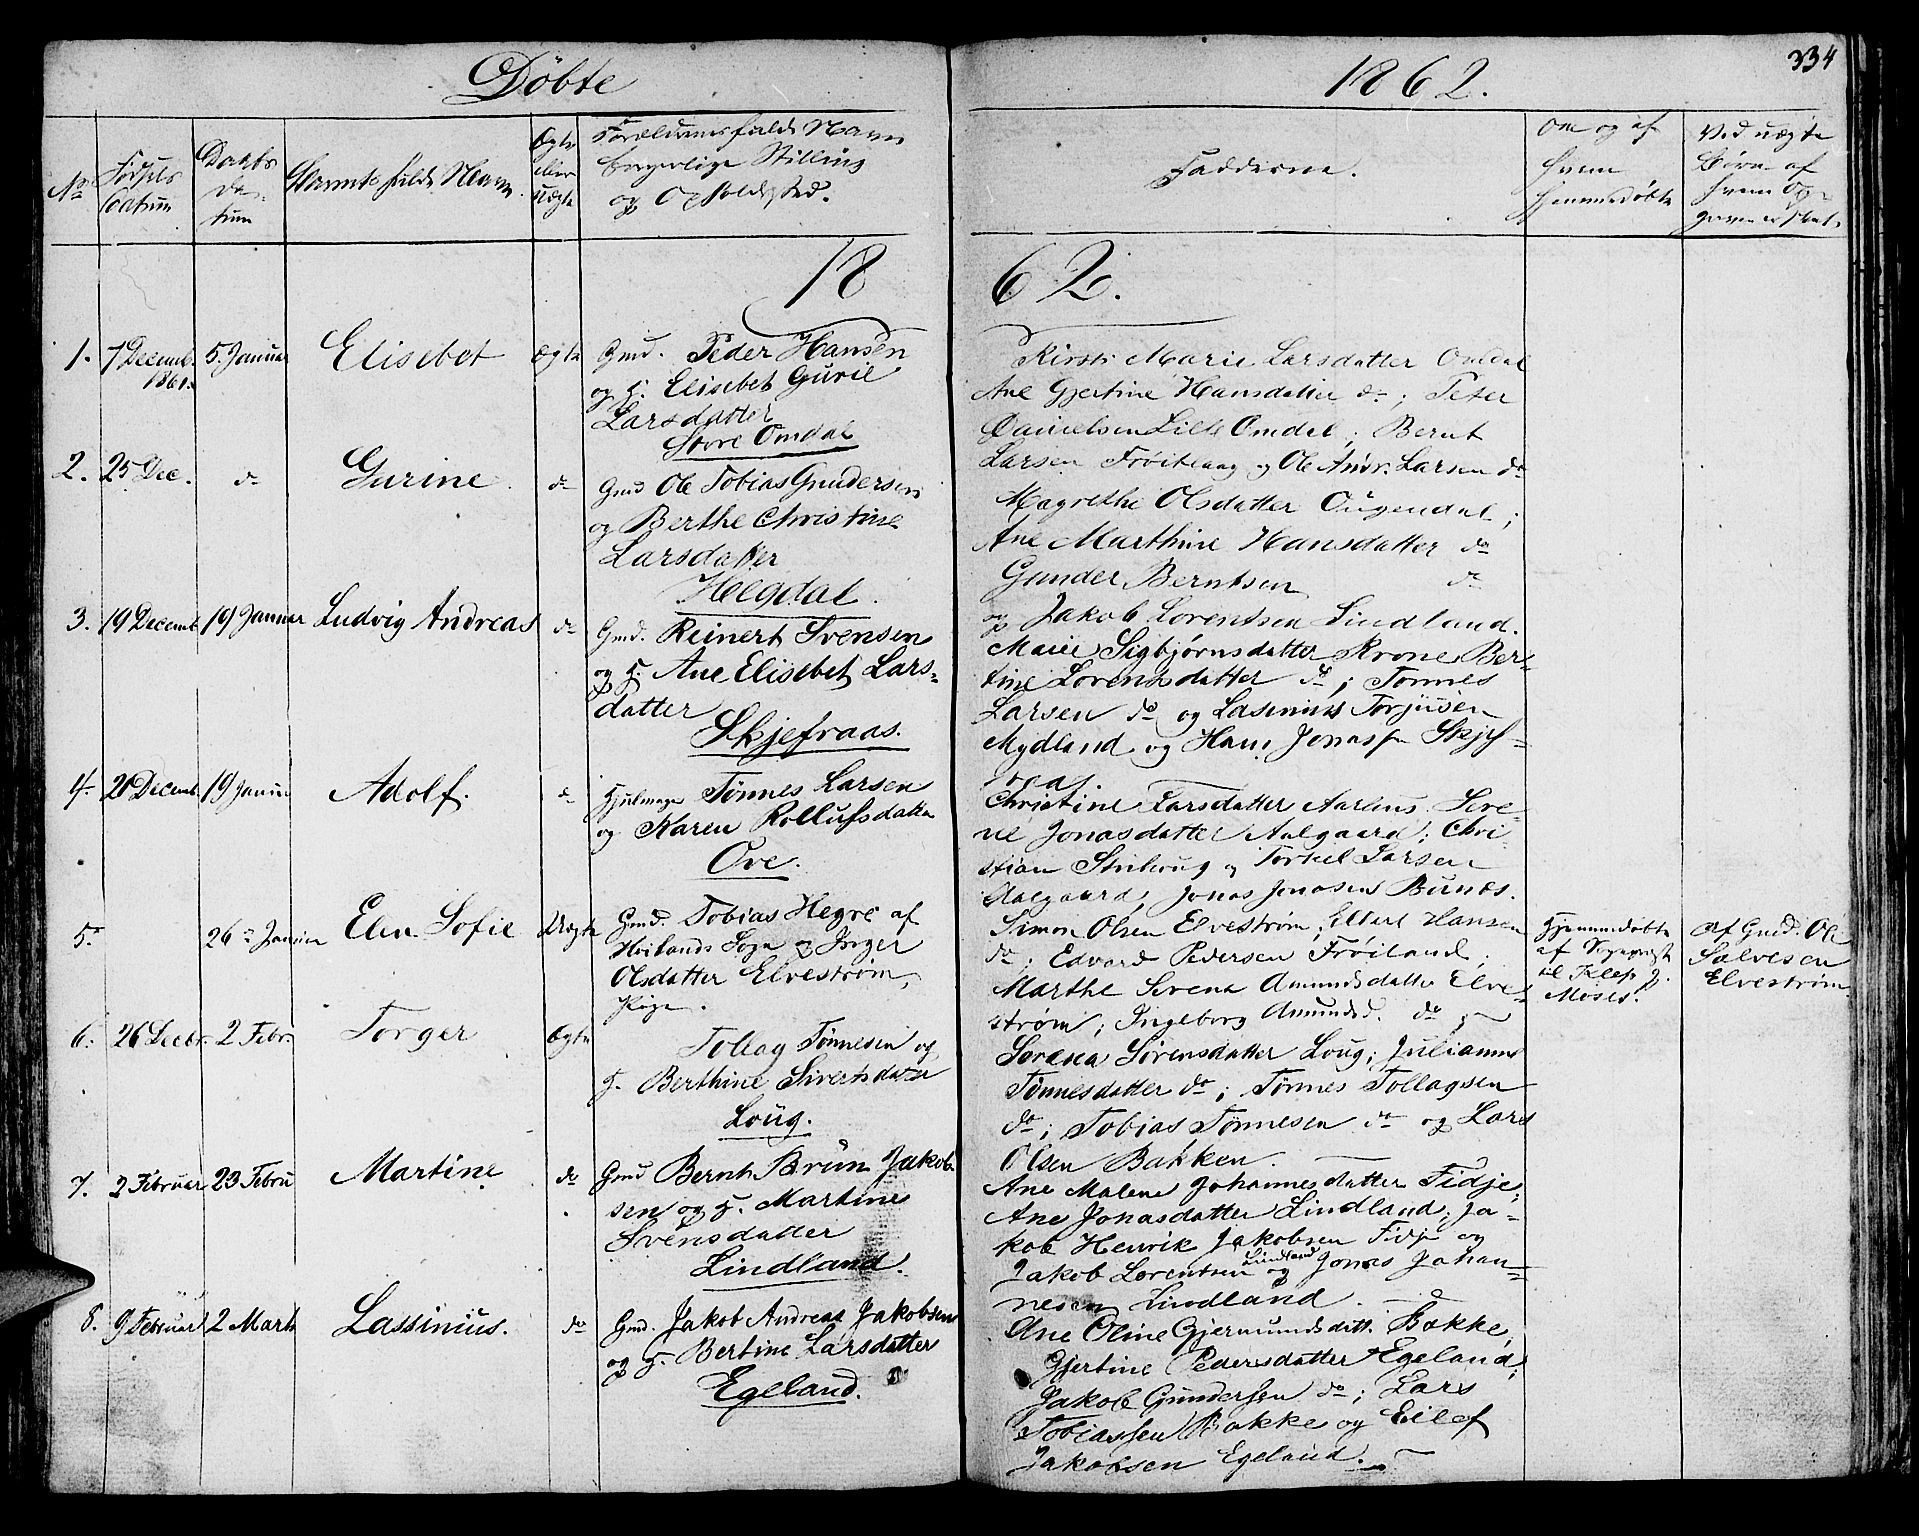 Døbte
1862.
334
No
Fødsels
Datum
Daabs
Da-
tum
Barnets fulde Navn.
Ægte
eller
Uægte
Forældrenes fulde Navn
borgerlige Stilling
og Opholdsted.
Fadderne.
Om og af
hvem
hjemmedøbte
Ved uægte
Børn af
hvem Op-
18
62.
1. 7 Decemb. 1861. 5. Januar Elisebet Ægte
Gmd. Peder Hansen
og H. Elisebet Gurie
Larsdatter
Store Omdal
Kirsti Marie Larsdatter Omdal
Ane Gjertine Hansdatter do; Peter
Danielsen Lille Omdal; Bernt
Larsen Frøitlaag og Ole Andr. Larsen do
2. 25 Dec. do Gurine do
Gmd Ole Tobias Gundersen
og Berthe Christine
Larsdatter
Helgdal.
Magrethe Olsdatter Ougendal;
Ane Marthine Hansdatter do
Gunder Berntsen do
og Jakob Lorentsen Lindland.
3. 19 Decemb 19 Januar Ludvig Andreas do
Gmd. Reinert Svensen
og H. Ane Elisebet Lars-
datter
Skjefraas.
Marie Sigbjørnsdatter Krone Ber-
tine Lorentsdatter do; Tønnes
Larsen do og Lasimus Torjusen
Mydland og Hans Jonasse Skjef-
raas.
4. 20 Decemb 19 Januar Adolf. do
Hjulmager Tønnes Larsen
og Karen Rollufsdatter
Ove.
Christine Larsdatter Aarhus, Sere-
ne Jonasdatter Aalgaard; Chri-
stian Skibrug og Torkel Larsen
Aalgaard, Jonas Jonasen Bunes.
5. 26 Januar Elen Sofie Uægte
Gmd. Tobias Hegre af
Høilands Sogn og Inger
Olsdatter Elvestrøm,
Pige.
Simon Olsen Elvestrøm; Ellert Hansen
do; Edvard Pedersen Frøiland;
Marthe Serena Amundsdatter Elve-
strøm; Ingeborg Amundsd. do
Hjemmedøbte
af Sognepræst
til Klep J.
Moses.
Af Gmd. Ole
Salvesen
Elvestrøm.
6. 26 Decbr. 2 Febr. Torger Ægte
Tollag Tønnesen og
H. Berthine Sivertsdatter
Loug.
Serena Sørensdatter Loug; Julianne
Tønnesdatter do; Tønnes Tollagsen
do; Tobias Tønnesen do og Lars
Olsen Bakken.
7. 2 Februar 23 Febru Martine do
Gmd Bernt Brun Jakob-
sen og H. Martine
Svensdatter
Lindland.
Ane Malene Johannesdatter Fidje;
Ane Jonasdatter Lindland; Ja-
kob Henrik Jakobsen Fidje og
Jakob Lorentsen Lindland og Jonas Johan-
nesen Lindland.
8. 9 Februar 2 Marts Lassinius. do
Gmd. Jakob Andreas Jakobsen
og H. Bertine Larsdatter
Egeland.
Ane Oline Gjermundsdatt. Bakke;
Gjertine Pedersdatter Egeland;
Jakob Gundersen do; Lars
Tobiassen Bakke og Eilef
Jakobsen Egeland.